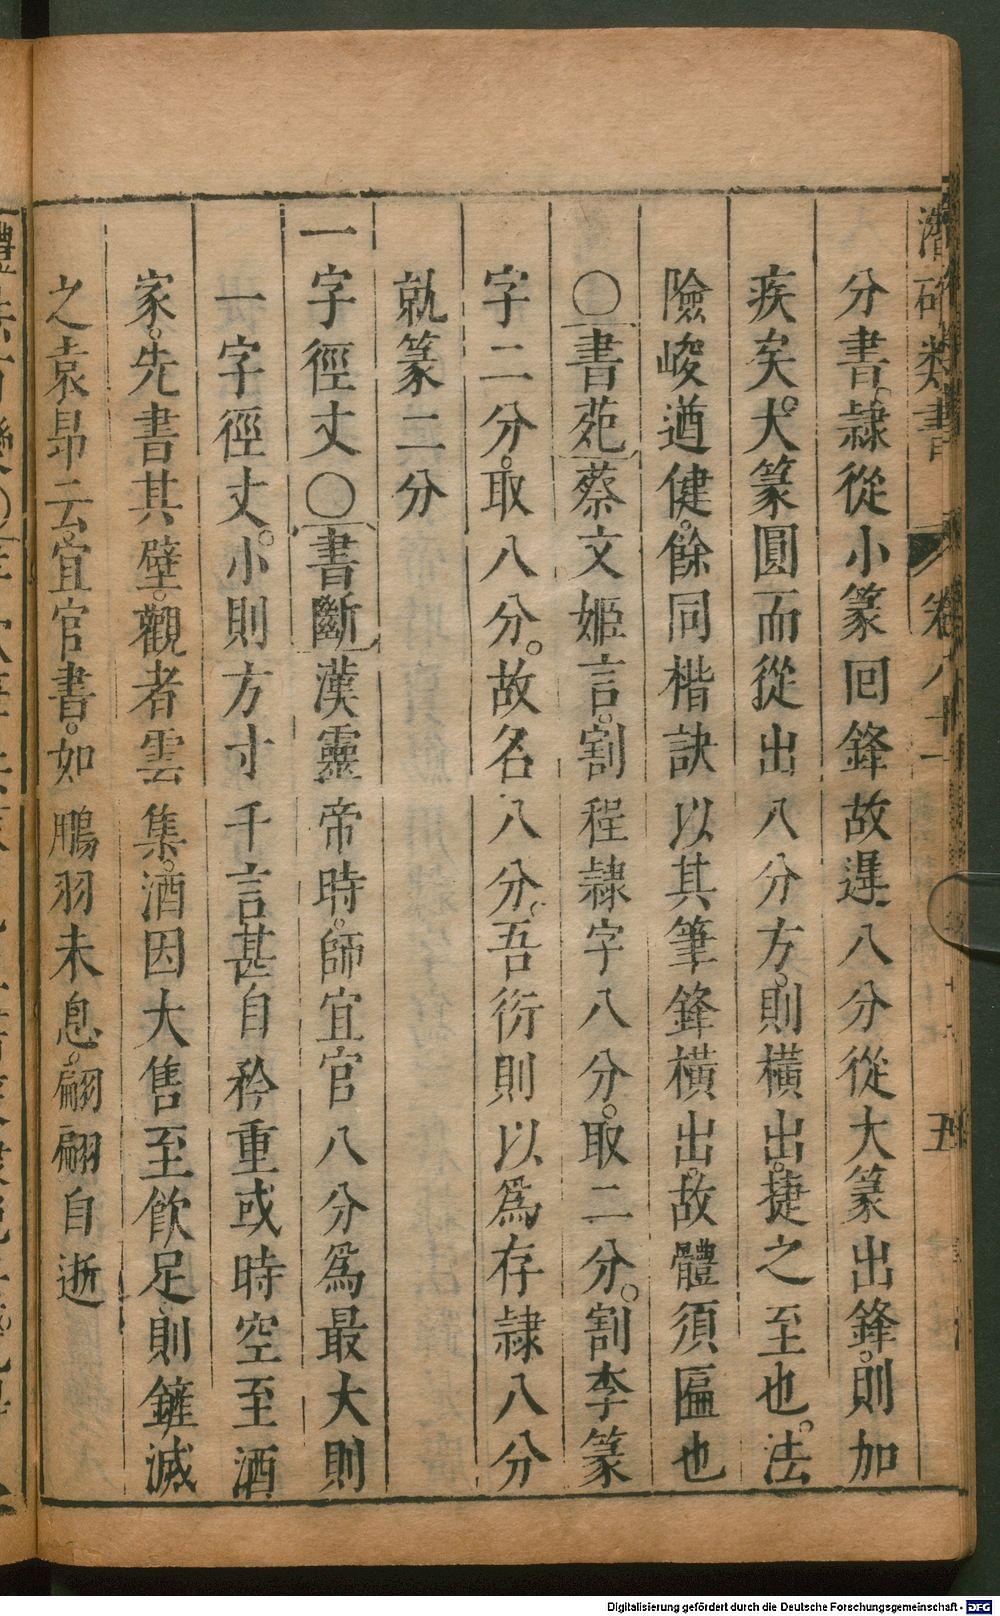 潛確類書 卷八十一 五
分書。隷從小篆回鋒故遲八分從大篆出鋒。則加
疾矣。大篆圓而從出八分方。則橫出。捷之至也。法
險峻遒健。餘同楷訣以其筆鋒橫出。故體須匾也
○書苑蔡文姬言。割程隷字八分。取二分。割李篆
字二分。取八分。故名八分。吾衍則以爲存隷八分
就篆二分
一字徑丈○書斷漢靈帝時。師宜官八分爲最大則
一字徑丈。小則方寸千言甚自矜重或時空至酒
家。先書其壁。觀者雲集。酒因大售至飮足。則鏟滅
之袁昂云。宜官書。如鵬羽未息。翩翩自逝
Digitalisierung gefördert durch die Deutsche Forschungsgemeinschaft - DFG